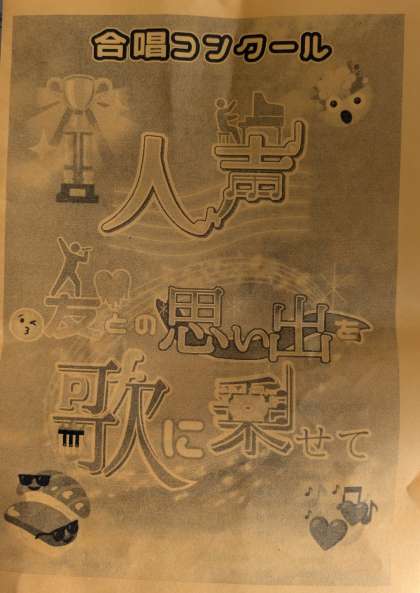 合唱コンクール
人声
友との思い出を
歌に乗せて